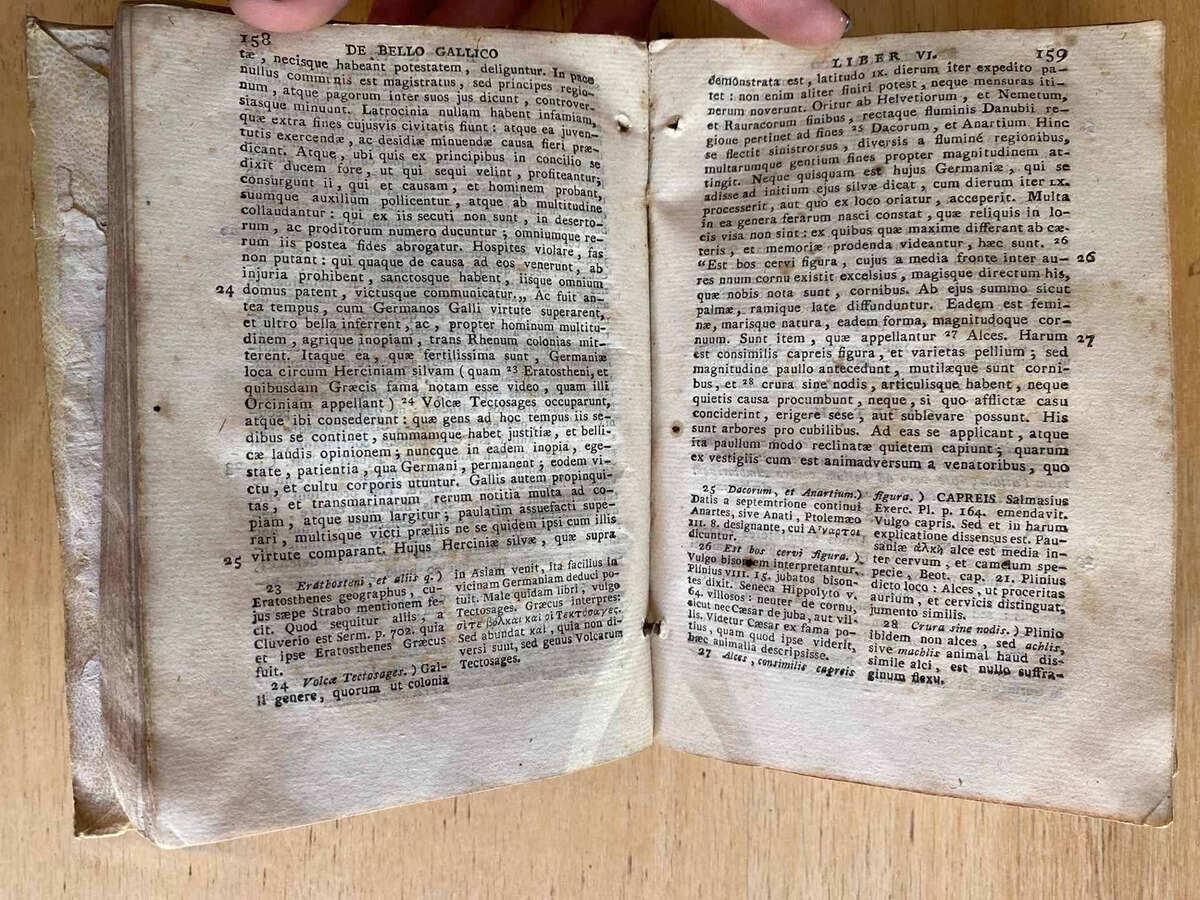 158
DE BELLO GALLICO
tæ, necisque habeant potestatem, deliguntur. In pace
nullus communis est magistratus, sed principes regio-
num, atque pagorum inter suos jus dicunt, controver-
siasque minuunt. Latrocinia nullam habent infamiam,
quæ extra fines cujusvis civitatis fiunt: atque ea juven-
tutis exercendæ, ac desidiæ minuendæ causa fieri præ-
dicant. Atque, ubi quis ex principibus in concilio se
dixit ducem fore, ut qui sequi velint, profiteantur;
consurgunt ii, qui et causam, et hominem probant,
suumque auxilium pollicentur, atque ab multitudine
collaudantur: qui ex iis secuti non sunt, in deserto-
rum, ac proditorum numero ducuntur; omniumque re-
rum iis postea fides abrogatur. Hospites violare, fas
non putant: qui quaque de causa ad eos venerunt, ab
injuria prohibent, sanctosque habent, iisque omnium
24 domus patent, victusque communicatur.,, Ac fuit an-
tea tempus, cum Germanos Galli virtute superarent,
et ultro bella inferrent, ac, propter hominum multitu-
dinem, agrique inopiam, trans Rhenum colonias mit-
terent. Itaque ea, quæ fertilissima sunt, Germaniæ
loca circum Herciniam silvam (quam 23 Eratostheni, et
quibusdam Græcis fama notam esse video, quam illi
Orciniam appellant) 24 Volcæ Tectosages occuparunt,
atque ibi consederunt: quæ gens ad hoc tempus iis se-
dibus se continet, summamque habet justitiæ, et belli-
cæ laudis opinionem; nuncque in eadem inopia, ege-
state, patientia, qua Germani, permanent; eodem vi-
ctu, et cultu corporis utuntur. Gallis autem propinqui-
tas, et transmarinarum rerum notitia multa ad co-
piam, atque usum largitur; paulatim assuefacti supe-
rari, multisque victi præliis ne se quidem ipsi cum illis
25 virtute comparant. Hujus Herciniæ silvæ, quæ supra
23 Erathosteni, et aliis q.)
Eratosthenes geographus, cu-
jus sæpe Strabo mentionem fe-
cit. Quod sequitur aliis, a
Cluverio est Serm. p. 702. quia
et ipse Eratosthenes Græcus
fuit.
24 Volcæ Tectosages.) Gal-
li genere, quorum ut colonia
in Asiam venit, ita facillus in
vicinam Germaniam deduci po-
tuit. Male quidam libri, vulgo
Tectosages. Græcus interpres:
οἱ τε βόλκαι καὶ οἱ Τεκτόσαγες.
Sed abundat καὶ, quia non di-
versi sunt, sed genus Volcarum
Tectosages.
LIBER VI. 159
demonstrata est, latitudo IX. dierum iter expedito pa-
tet: non enim aliter finiri potest, neque mensuras iti-
nerum noverunt. Oritur ab Helvetiorum, et Nemetum,
et Rauracorum finibus, rectaque fluminis Danubii re-
gione pertinet ad fines 25 Dacorum, et Anartium. Hinc
se flectit sinistrorsus, diversis a fluminé regionibus,
multarumque gentium fines propter magnitudinem at-
tingit. Neque quisquam est hujus Germaniæ, qui se
adisse ad initium ejus silvæ dicat, cum dierum iter LX.
processerit, aut quo ex loco oriatur, acceperit. Multa
in ea genera ferarum nasci constat, quæ reliquis in lo-
cis visa non sint: ex quibus quæ maxime differant ab cæ-
teris, et memoriæ prodenda videantur, hæc sunt. 26
“Est bos cervi figura, cujus a media fronte inter au- 26
res unum cornu existit excelsius, magisque directum his,
quæ nobis nota sunt, cornibus. Ab ejus summo sicut
palmæ, ramique late diffunduntur. Eadem est femi-
næ, marisque natura, eadem forma, magnitudoque cor-
nuum. Sunt item, quæ appellantur 27 Alces. Harum 27
est consimilis capreis figura, et varietas pellium; sed
magnitudine paullo antecedunt, mutilæque sunt corni-
bus, et 28 crura sine nodis, articulisque habent, neque
quietis causa procumbunt, neque, si quo afflictæ casu
conciderint, erigere sese, aut sublevare possunt. His
sunt arbores pro cubilibus. Ad eas se applicant, atque
ita paullum modo reclinatæ quietem capiunt; quarum
ex vestigiis cum est animadversum a venatoribus, quo
25 Dacorum, et Anartium.)
Datis a septemtrione continui
Anartes, sive Anati, Ptolemæo
III. 8. designante, cui Ἄναρτοι
dicuntur.
26 Est bos cervi figura.)
Vulgo bisontem interpretantur.
Plinius VIII. 15. jubatos bison-
tes dixit. Seneca Hippolyto v.
64. villosos: neuter de cornu,
sicut nec Cæsar de juba, aut vil-
lis. Videtur Cæsar ex fama po-
tius, quam quod ipse viderit,
hæc animalia descripsisse.
27 Alces, consimilis capreis
figura.) CAPREIS Salmasius
Exerc. Pl. p. 164. emendavit.
Vulgo capris. Sed et in harum
explicatione dissensus est. Pau-
saniæ ἀλκὴ alce est media in-
ter cervum, et camelum spe-
pecie, Beot. cap. 21. Plinius
dicto loco: Alces, ut proceritas
aurium, et cervicis distinguat,
jumento similis.
28 Crura sine nodis.) Plinio
ibidem non alces, sed achlis,
sive machlis animal haud dis-
simile alci, est nullo suffra-
ginum flexu.